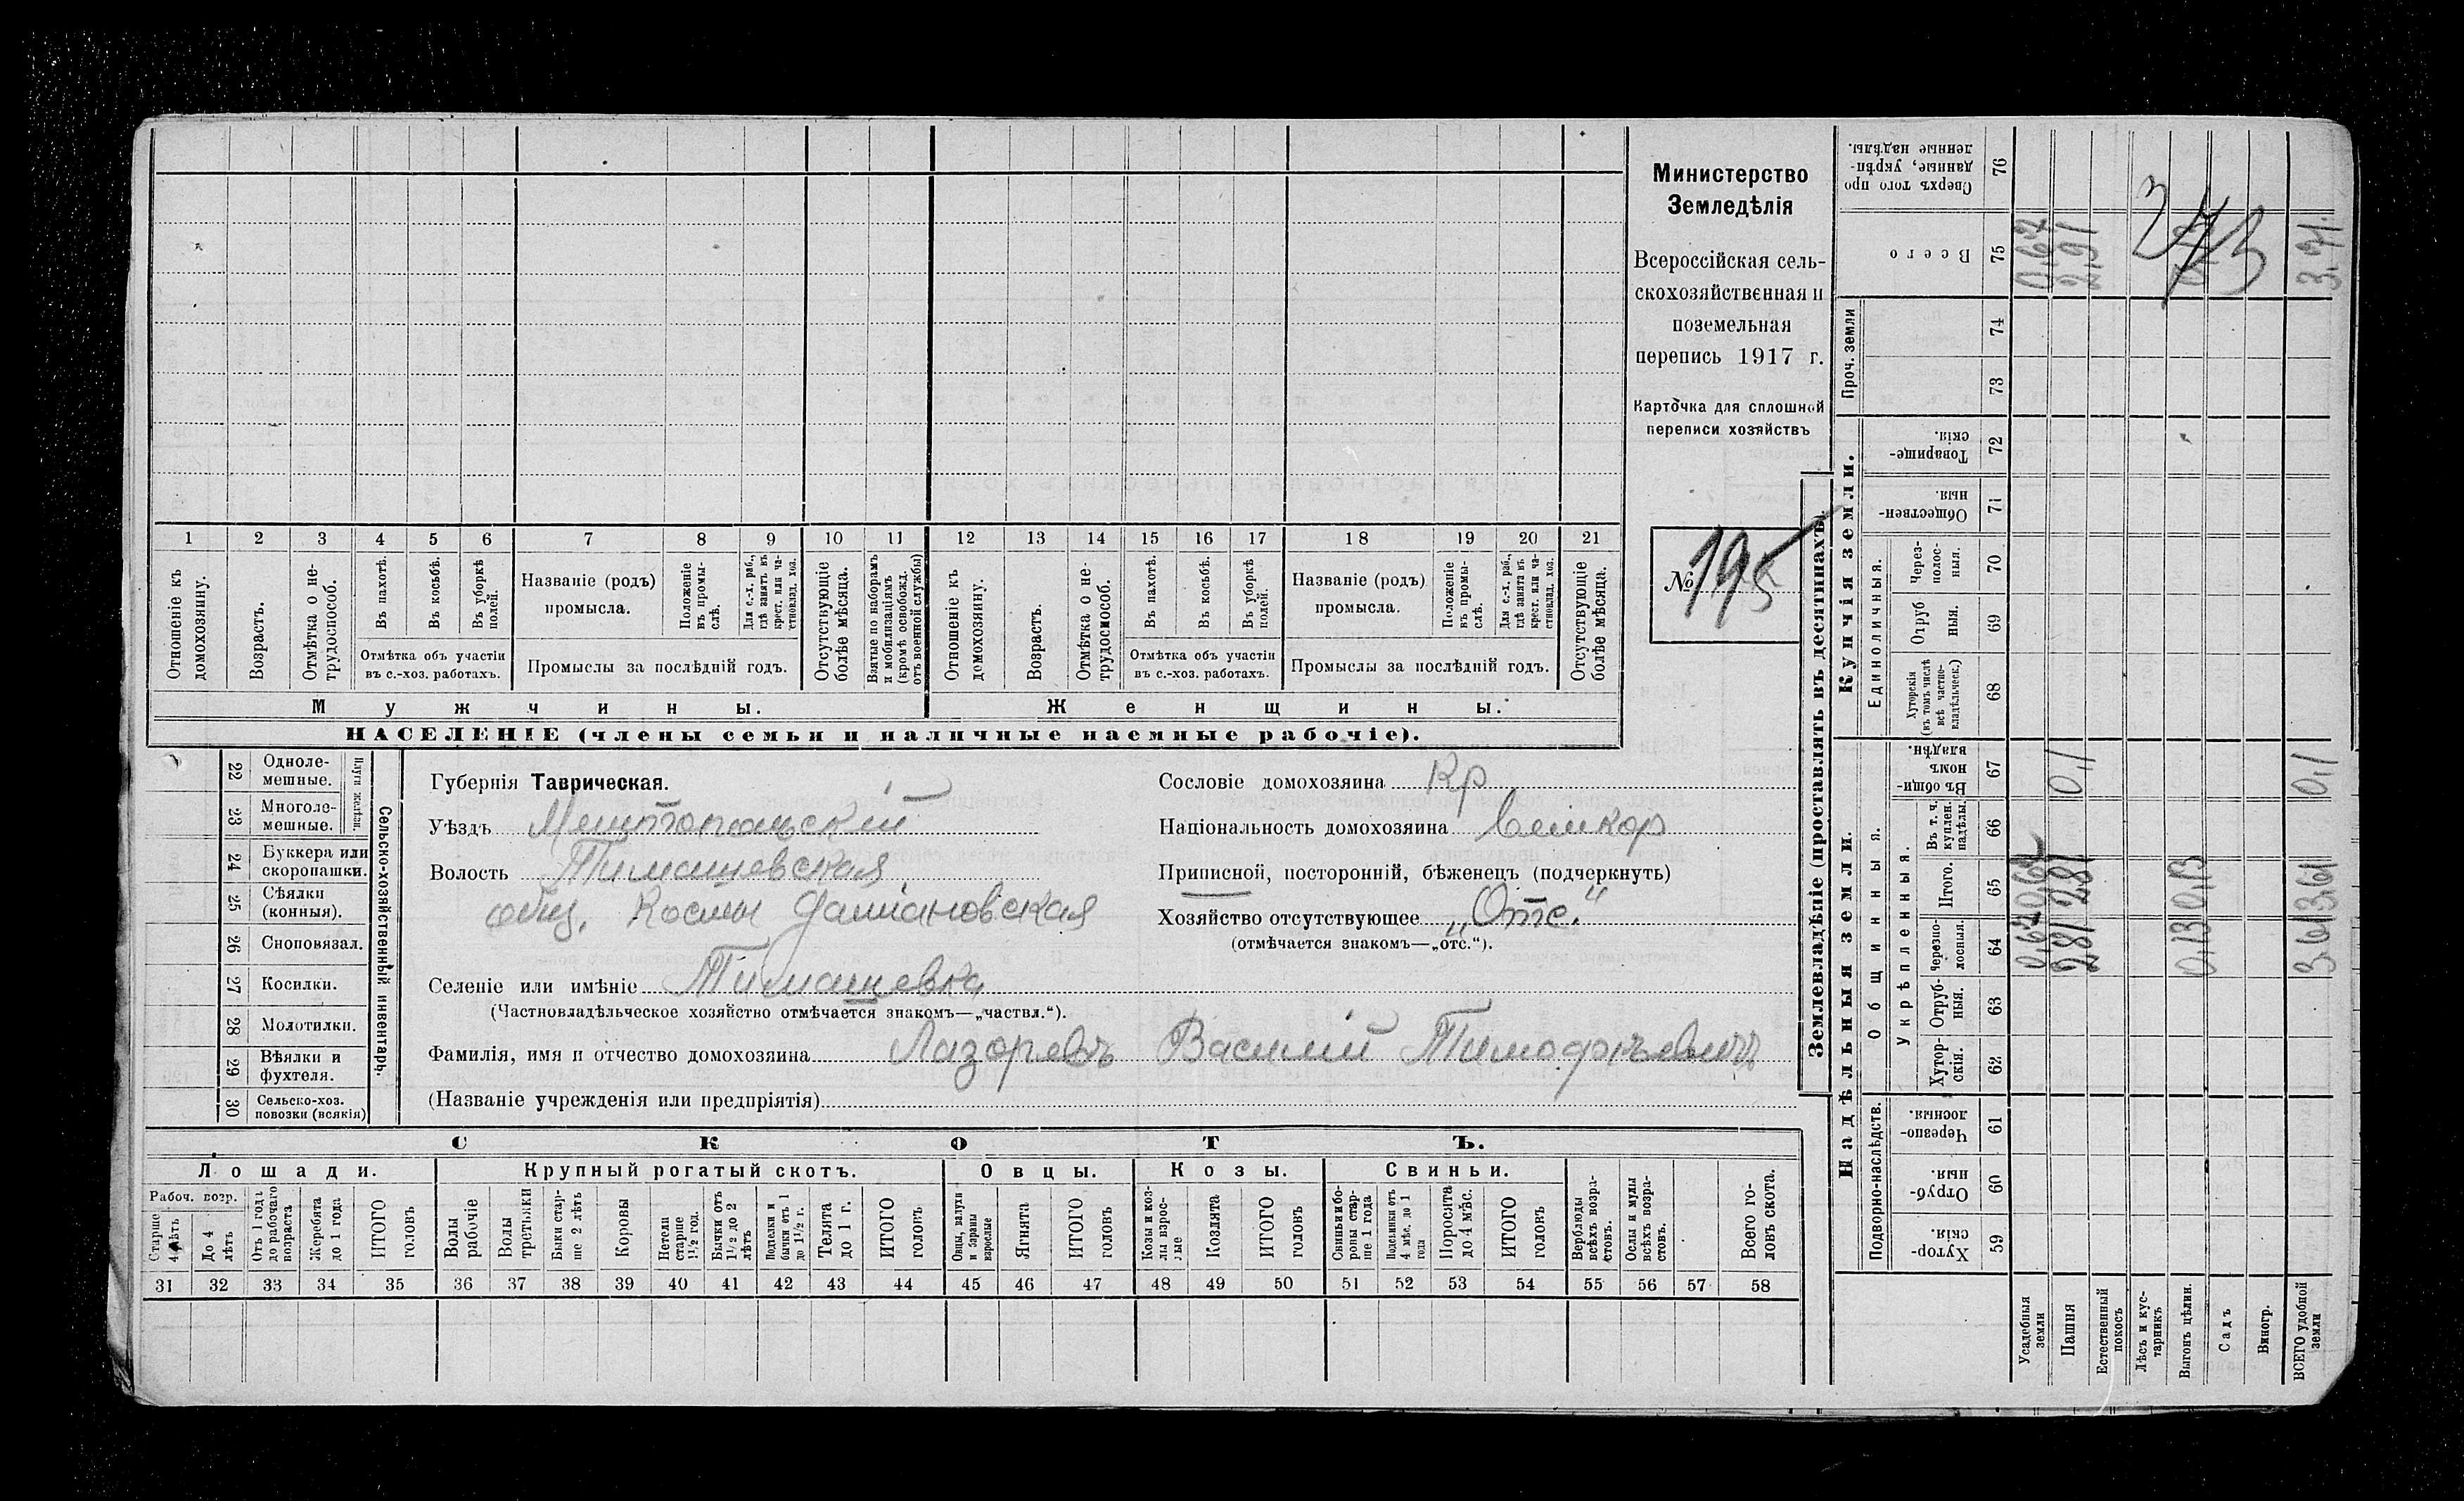 Министерство
Земледѣлія
Всероссійская сель-
скохозяйственная и
поземельная
перепись 1917 г.
Карточка для сплошной
переписи хозяйствъ
№ 195
1 2 3 4 5 6 7 8 9 10 11 12 13 14 15 16 17 18 19 20 21
Отношеніе къ домохозяину.
Возрастъ.
Отмѣтка о не-трудоспособ.
Въ пахотѣ.
Въ косьбѣ.
Въ уборкѣ полей.
Отмѣтка объ участіи
въ с.-хоз. работахъ.
Названіе (родъ)
промысла.
Положеніе въ промы-слѣ.
Для с.-х. раб., гдѣ занятъ въ крест. или ча-стновлад. хоз.
Промыслы за послѣдній годъ.
Отсутствующіе болѣе мѣсяца.
Взятые по наборамъ и мобилизаціямъ (кромѣ освобожд. отъ военной службы)
Отношеніе къ домохозяину.
Возрастъ.
Отмѣтка о не-трудоспособ.
Въ пахотѣ.
Въ косьбѣ.
Въ уборкѣ полей.
Отмѣтка объ участіи
въ с.-хоз. работахъ.
Названіе (родъ)
промысла.
Положеніе въ промы-слѣ.
Для с.-х. раб., гдѣ занята въ крест. или ча-стновлад. хоз.
Промыслы за послѣдній годъ.
Отсутствующіе болѣе мѣсяца.
Мужчины. Женщины.
НАСЕЛЕНІЕ (члены семьи и наличные наемные рабочіе).
Сельско-хозяйственный инвентарь.
Плуги желѣзн.
22 Одноле-мешные.
23 Многоле-мешные.
24 Буккера или скоропашки.
25 Сѣялки (конныя).
26 Сноповязал.
27 Косилки.
28 Молотилки.
29 Вѣялки и фухтеля.
30 Сельско-хоз. повозки (всякія)
Губернія Таврическая.
Уѣздъ Мелитопольскій
Волость Тимашевская
общ. Космы Даміановская
Селеніе или имѣніе Тимашевка
(Частновладѣльческое хозяйство отмѣчается знакомъ—„частвл.“).
Фамилія, имя и отчество домохозяина Лазаревъ Василій Тимофѣевичъ
(Названіе учрежденія или предпріятія)
Сословіе домохозяина Кр
Національность домохозяина Великор
Приписной, посторонній, бѣженецъ (подчеркнуть)
Хозяйство отсутствующее „Отс.“
(отмѣчается знакомъ—„отс.“).
СКОТЪ.
Лошади. Крупный рогатый скотъ. Овцы. Козы. Свиньи.
Рабоч. возр.
Старше 4 лѣтъ
До 4 лѣтъ
Отъ 1 года до рабочаго возраста
Жеребята до 1 года
ИТОГО головъ
Волы рабочіе
Волы третьяки
Быки стар-ше 2 лѣтъ
Коровы
Нетели старше 1½ год.
Бычки отъ 1½ до 2 лѣтъ
Подтелки и бычки отъ 1 до 1½ г.
Телята до 1 г.
ИТОГО головъ
Овцы, валухи и бараны взрослые
Ягнята
ИТОГО головъ
Козы и коз-лы взрос-лые
Козлята
ИТОГО головъ
Свиньи и бо-ровы стар-ше 1 года
Подсвинки отъ 4 мѣс. до 1 года
Поросята до 4 мѣс.
ИТОГО головъ
Верблюды всѣхъ возра-стовъ.
Ослы и мулы всѣхъ возра-стовъ.
Всего го-ловъ скота.
31 32 33 34 35 36 37 38 39 40 41 42 43 44 45 46 47 48 49 50 51 52 53 54 55 56 57 58
Землевладѣніе (проставлять въ десятинахъ).
Надѣльныя земли. Купчія земли. Проч. земли
Подворно-наслѣдств.
Общинныя.
Укрѣпленныя.
Единоличныя.
Хутор-скія. 59
Отруб-ныя. 60
Черезпо-лосныя. 61
Хутор-скія. 62
Отруб-ныя. 63
Черезпо-лосныя. 64
Итого. 65
Въ т. ч. куплен. надѣлы. 66
Въ общи-номъ владѣн. 67
Хуторскія (въ томъ числѣ всѣ частно-владѣльческ.) 68
Отруб ныя. 69
Через-полос-ныя. 70
Обществен-ныя. 71
Товарище-скія. 72
73
74
Всего 75
Сверхъ того про данные, укрѣп-ленные надѣлы. 76
Усадебныя земли 0,67 0,67 0,67
Пашня 2,81 2,81 0,1 2,91
Естественный покосъ
Лѣсъ и кус-тарникъ
Выгонъ цѣлин. 0,13 0,13
Садъ
Виногр.
ВСЕГО удобной земли 3,61 3,61 0,1 3,71